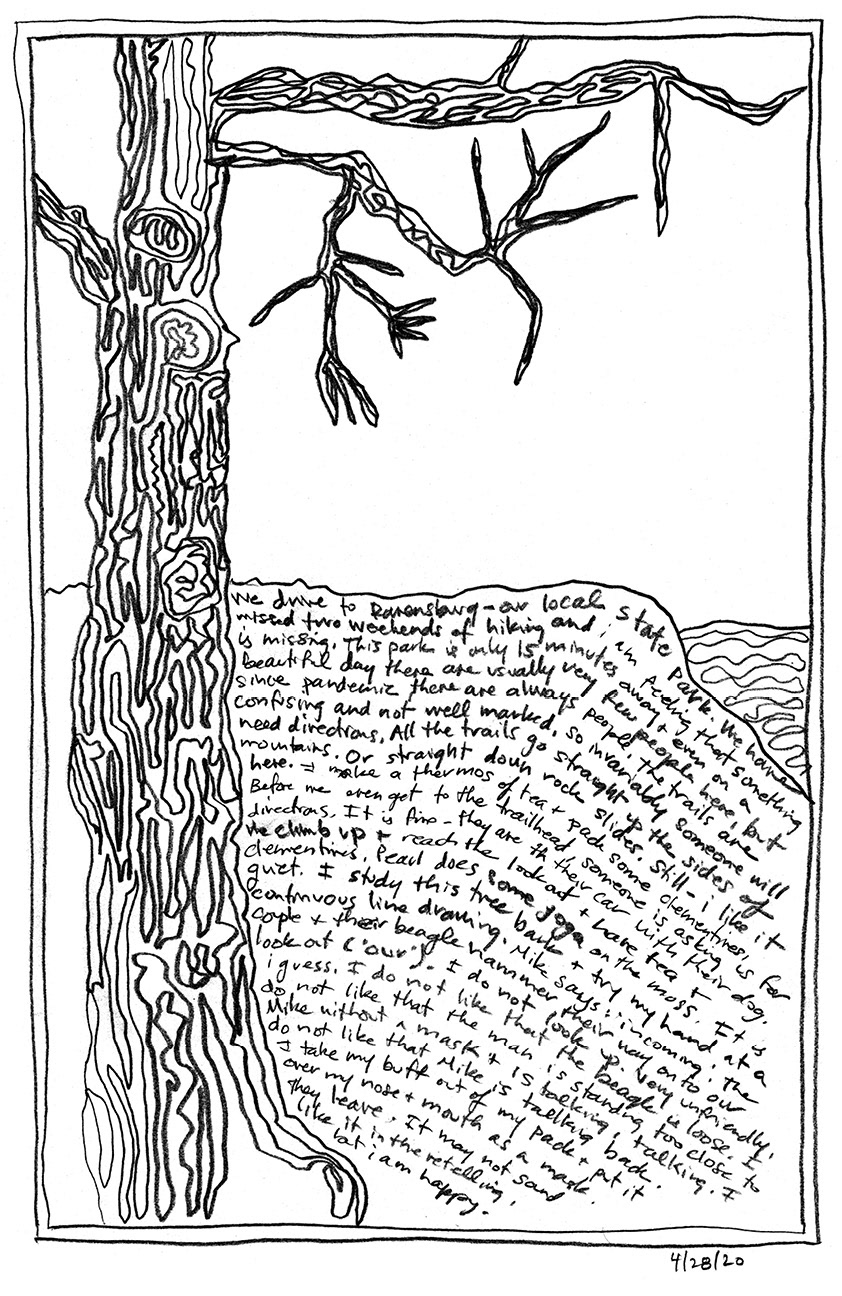 We drive to Ravensburg - our local state park. We have
missed two weekends of hiking and i am feeling that something
is missing. This park is only 15 minutes away + even on a
beautiful day there are usually very few people here, but
since pandemic there are always people. The trails are
confusing and not well marked. So invariably someone will
need directions. All the trails go straight up the sides of
mountains. Or straight down rock slides. Still - i like it
here. I make a thermos of tea + pack some clementines.
Before we even get to the trailhead someone is asking us for
directions. It is fine - they are in their car with their dog.
We climb up + reach the lookout + have tea +
clementines. Pearl does some yoga on the moss. It is
quiet. I study this tree bark + try my hand at a
continuous line drawing. Mike says: incoming. The
couple + their beagle hammer their way onto our
lookout ("our"). I do not look up. Very unfriendly,
i guess. I do not like that the beagle is loose. I
do not like that the man is standing too close to
Mike without a mask + is talking, talking. I
do not like that Mike is talking back.
I take my buff out of my pack + put it
over my nose + mouth as a mask.
They leave. It may not sound
like it in the retelling,
but i am happy.
4/28/20